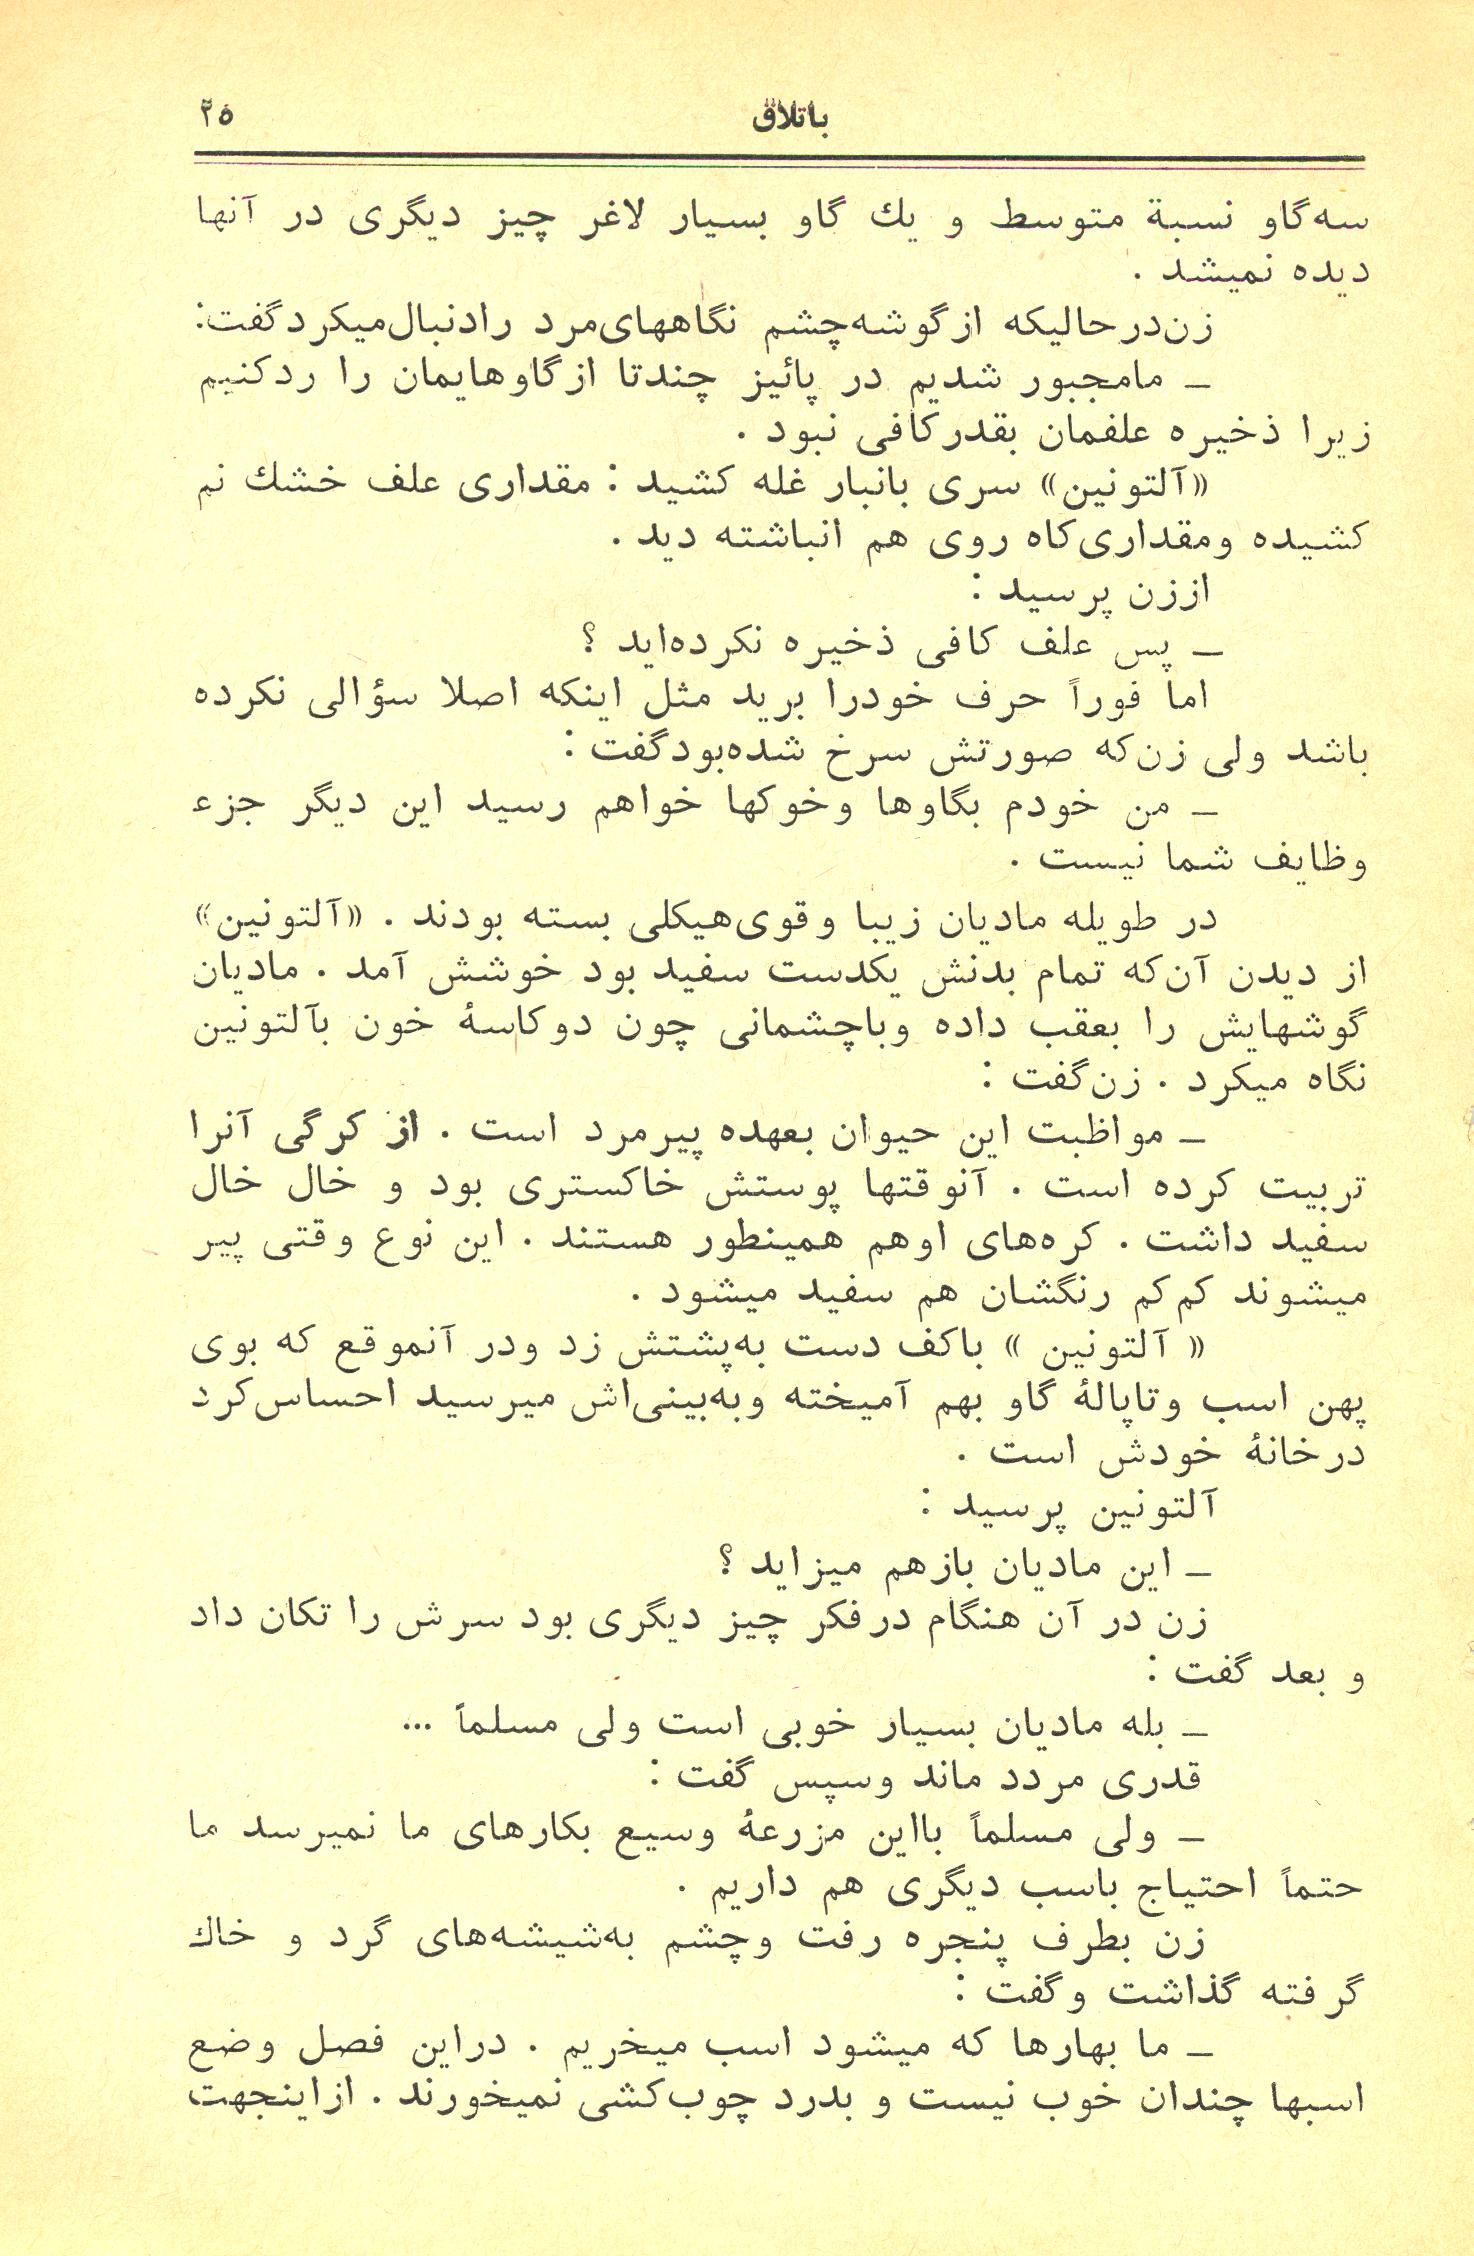 باتلاق ۲۵
سه‌گاو نسبة متوسط و یك گاو بسیار لاغر چیز دیگری در آنها
دیده نمیشد .
زن‌در حالیکه ازگوشه‌چشم نگاههای‌مرد رادنبال‌میکرد گفت:
ـ مامجبور شدیم در پائیز چندتا ازگاوهایمان را ردکنیم
زیرا ذخیره علفمان بقدرکافی نبود .
«آلتونین» سری بانبار غله کشید : مقداری علف خشك نم
کشیده ومقداری‌کاه روی هم انباشته دید .
اززن پرسید :
ـ پس علف کافی ذخیره نکرده‌اید ؟
اما فوراً حرف خودرا برید مثل اینکه اصلا سؤالی نکرده
باشد ولی زن‌که صورتش سرخ شده‌بود گفت :
ـ من خودم بگاوها وخوکها خواهم رسید این دیگر جزء
وظایف شما نیست .
در طویله مادیان زیبا وقوی‌هیکلی بسته بودند . «آلتونین»
از دیدن آن‌که تمام بدنش یکدست سفید بود خوشش آمد . مادیان
گوشهایش را بعقب داده وباچشمانی چون دوکاسهٔ خون بآلتونین
نگاه میکرد . زن‌گفت :
ـ مواظبت این حیوان بعهده پیرمرد است . از کرگی آنرا
تربیت کرده است . آنوقتها پوستش خاکستری بود و خال خال
سفید داشت . کره‌های اوهم همینطور هستند . این نوع وقتی پیر
میشوند کم‌کم رنگشان هم سفید میشود .
« آلتونین » باکف دست به‌پشتش زد ودر آنموقع که بوی
پهن اسب وتاپالهٔ گاو بهم آمیخته وبه‌بینی‌اش میرسید احساس‌کرد
درخانهٔ خودش است .
آلتونین پرسید :
ـ این مادیان بازهم میزاید ؟
زن در آن هنگام درفکر چیز دیگری بود سرش را تکان داد
و بعد گفت :
ـ بله مادیان بسیار خوبی است ولی مسلماً ...
قدری مردد ماند وسپس گفت :
ـ ولی مسلماً بااین مزرعهٔ وسیع بکارهای ما نمیرسد ما
حتماً احتیاج باسب دیگری هم داریم .
زن بطرف پنجره رفت وچشم به‌شیشه‌های گرد و خاك
گرفته گذاشت وگفت :
ـ ما بهارها که میشود اسب میخریم . دراین فصل وضع
اسبها چندان خوب نیست و بدرد چوب‌کشی نمیخورند . ازاینجهت